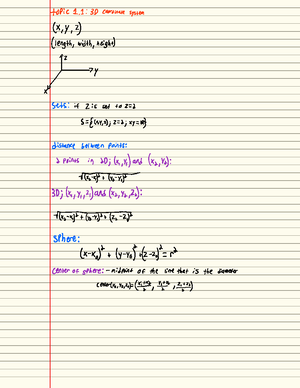 topic 1.1: 3D coordinate system
(x, y, z)
(length, width, height)
z
y
x
Sets: if z is set to z=2
S = {(x,y,z): z=2, x,y=ℝ}
distance between points:
2 points in 2D; (x₁,y₁) and (x₂,y₂):
√(x₂-x₁)² + (y₂-y₁)²
3D; (x₁,y₁,z₁) and (x₂,y₂,z₂):
√(x₂-x₁)² + (y₂-y₁)² + (z₂-z₁)²
Sphere:
(x-x₀)² + (y-y₀)² + (z-z₀)² = r²
center of sphere: - midpoint of the line that is the diameter